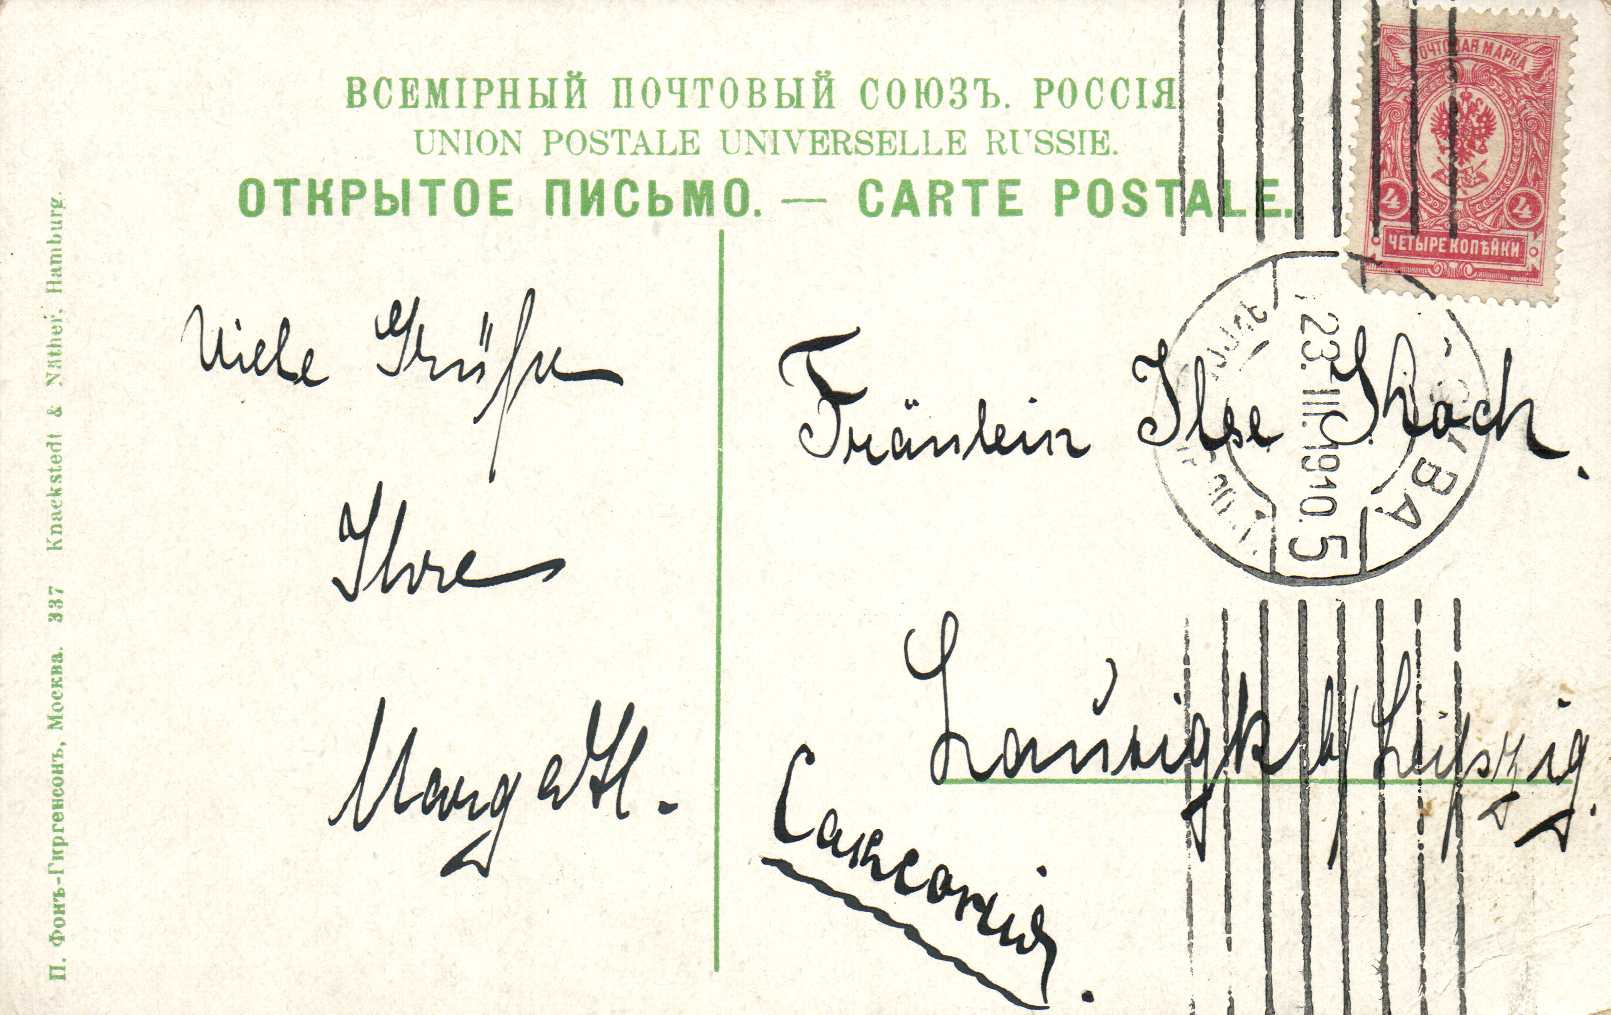 ВСЕМІРНЫЙ ПОЧТОВЫЙ СОЮЗЪ. РОССІЯ
UNION POSTALE UNIVERSELLE RUSSIE.
ОТКРЫТОЕ ПИСЬМО. — CARTE POSTALE.
ПОЧТОВАЯ МАРКА
4 4
ЧЕТЫРЕ КОПѢЙКИ
23.III.1910.5
Viele Grüße
Ihre
Fräulein Ilse Koch.
b/ Leipzig.
Саксонія.
П. Фонъ-Гиргенсонъ, Москва. 337 Knackstedt & Näther, Hamburg.